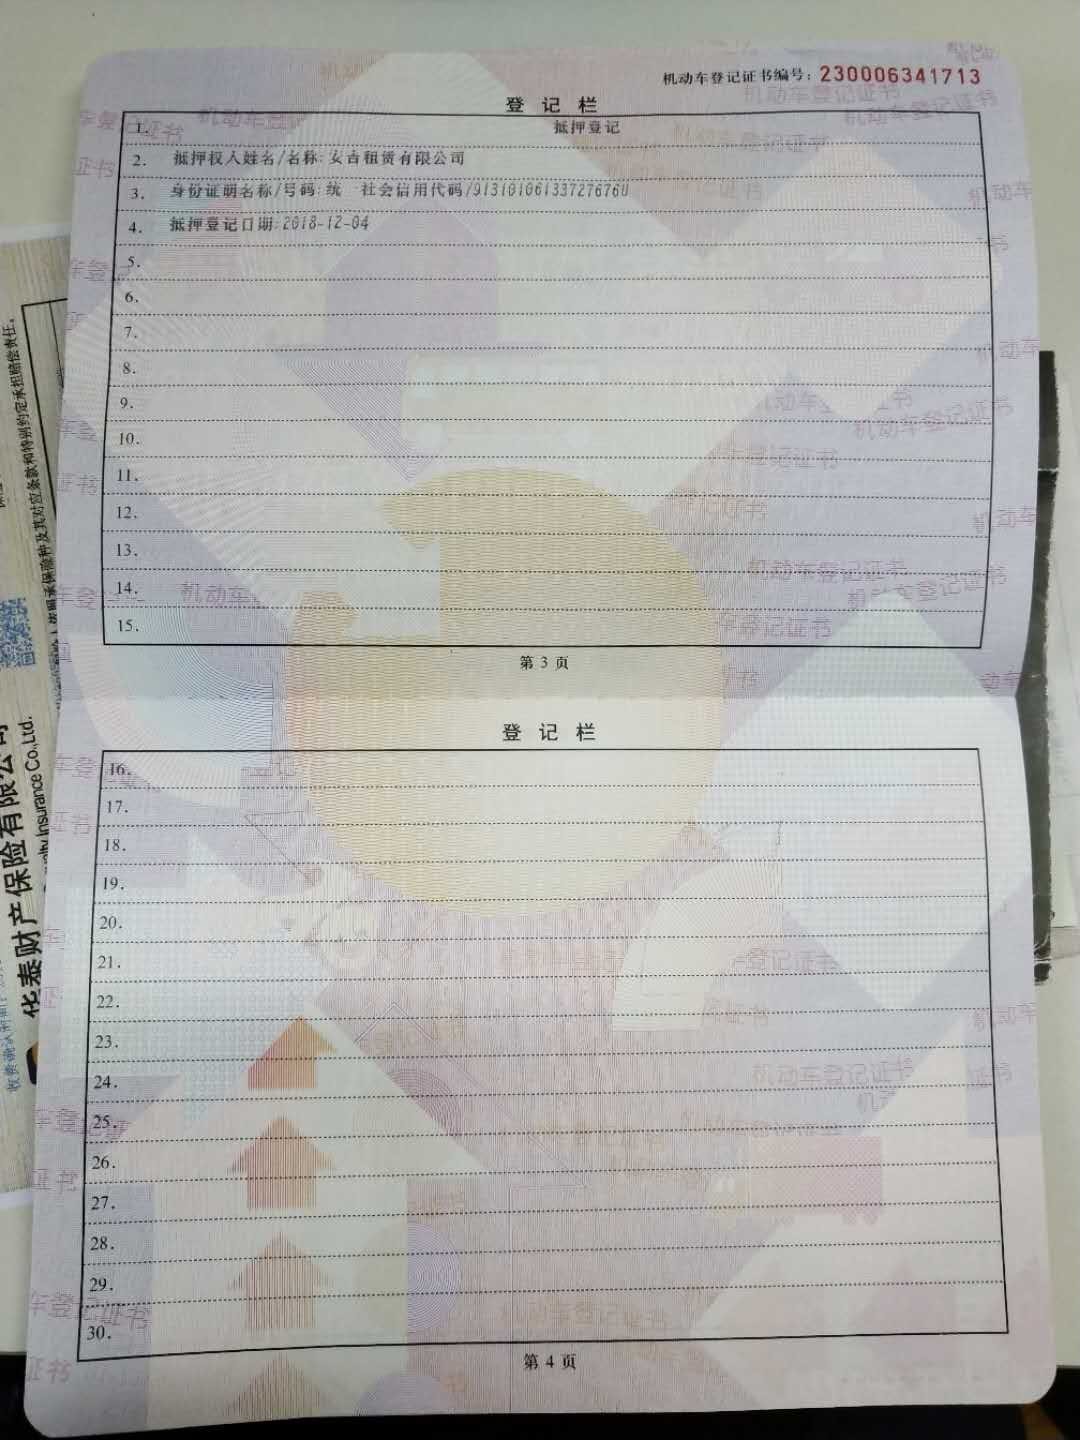 机动车登记证书编号：230006341713
登 记 栏
1. 抵押登记
2. 抵押权人姓名/名称:安吉租赁有限公司
3. 身份证明名称/号码:统一社会信用代码/91310106133727676U
4. 抵押登记日期:2018-12-04
5.
6.
7.
8.
9.
10.
11.
12.
13.
14.
15.
第 3 页
登 记 栏
16.
17.
18.
19.
20.
21.
22.
23.
24.
25.
26.
27.
28.
29.
30.
第 4 页
华泰财产保险有限公司
Insurance Co.,Ltd.
承保险种及其对应条款和特别约定承担赔偿责任。
收费确认时间：